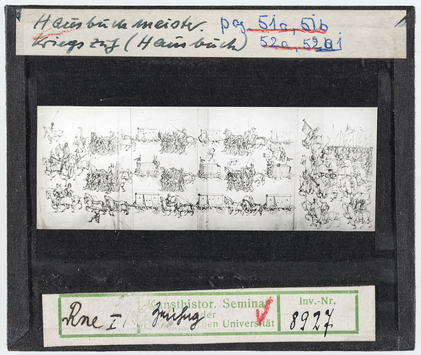 Hausbuchmeister. pag 51a, 51b
Kriegszug (Hausbuch) 52a, 52b
Kunsthistor. Seminar
der
schen Universität
Inv.-Nr.
8927
Rne I,